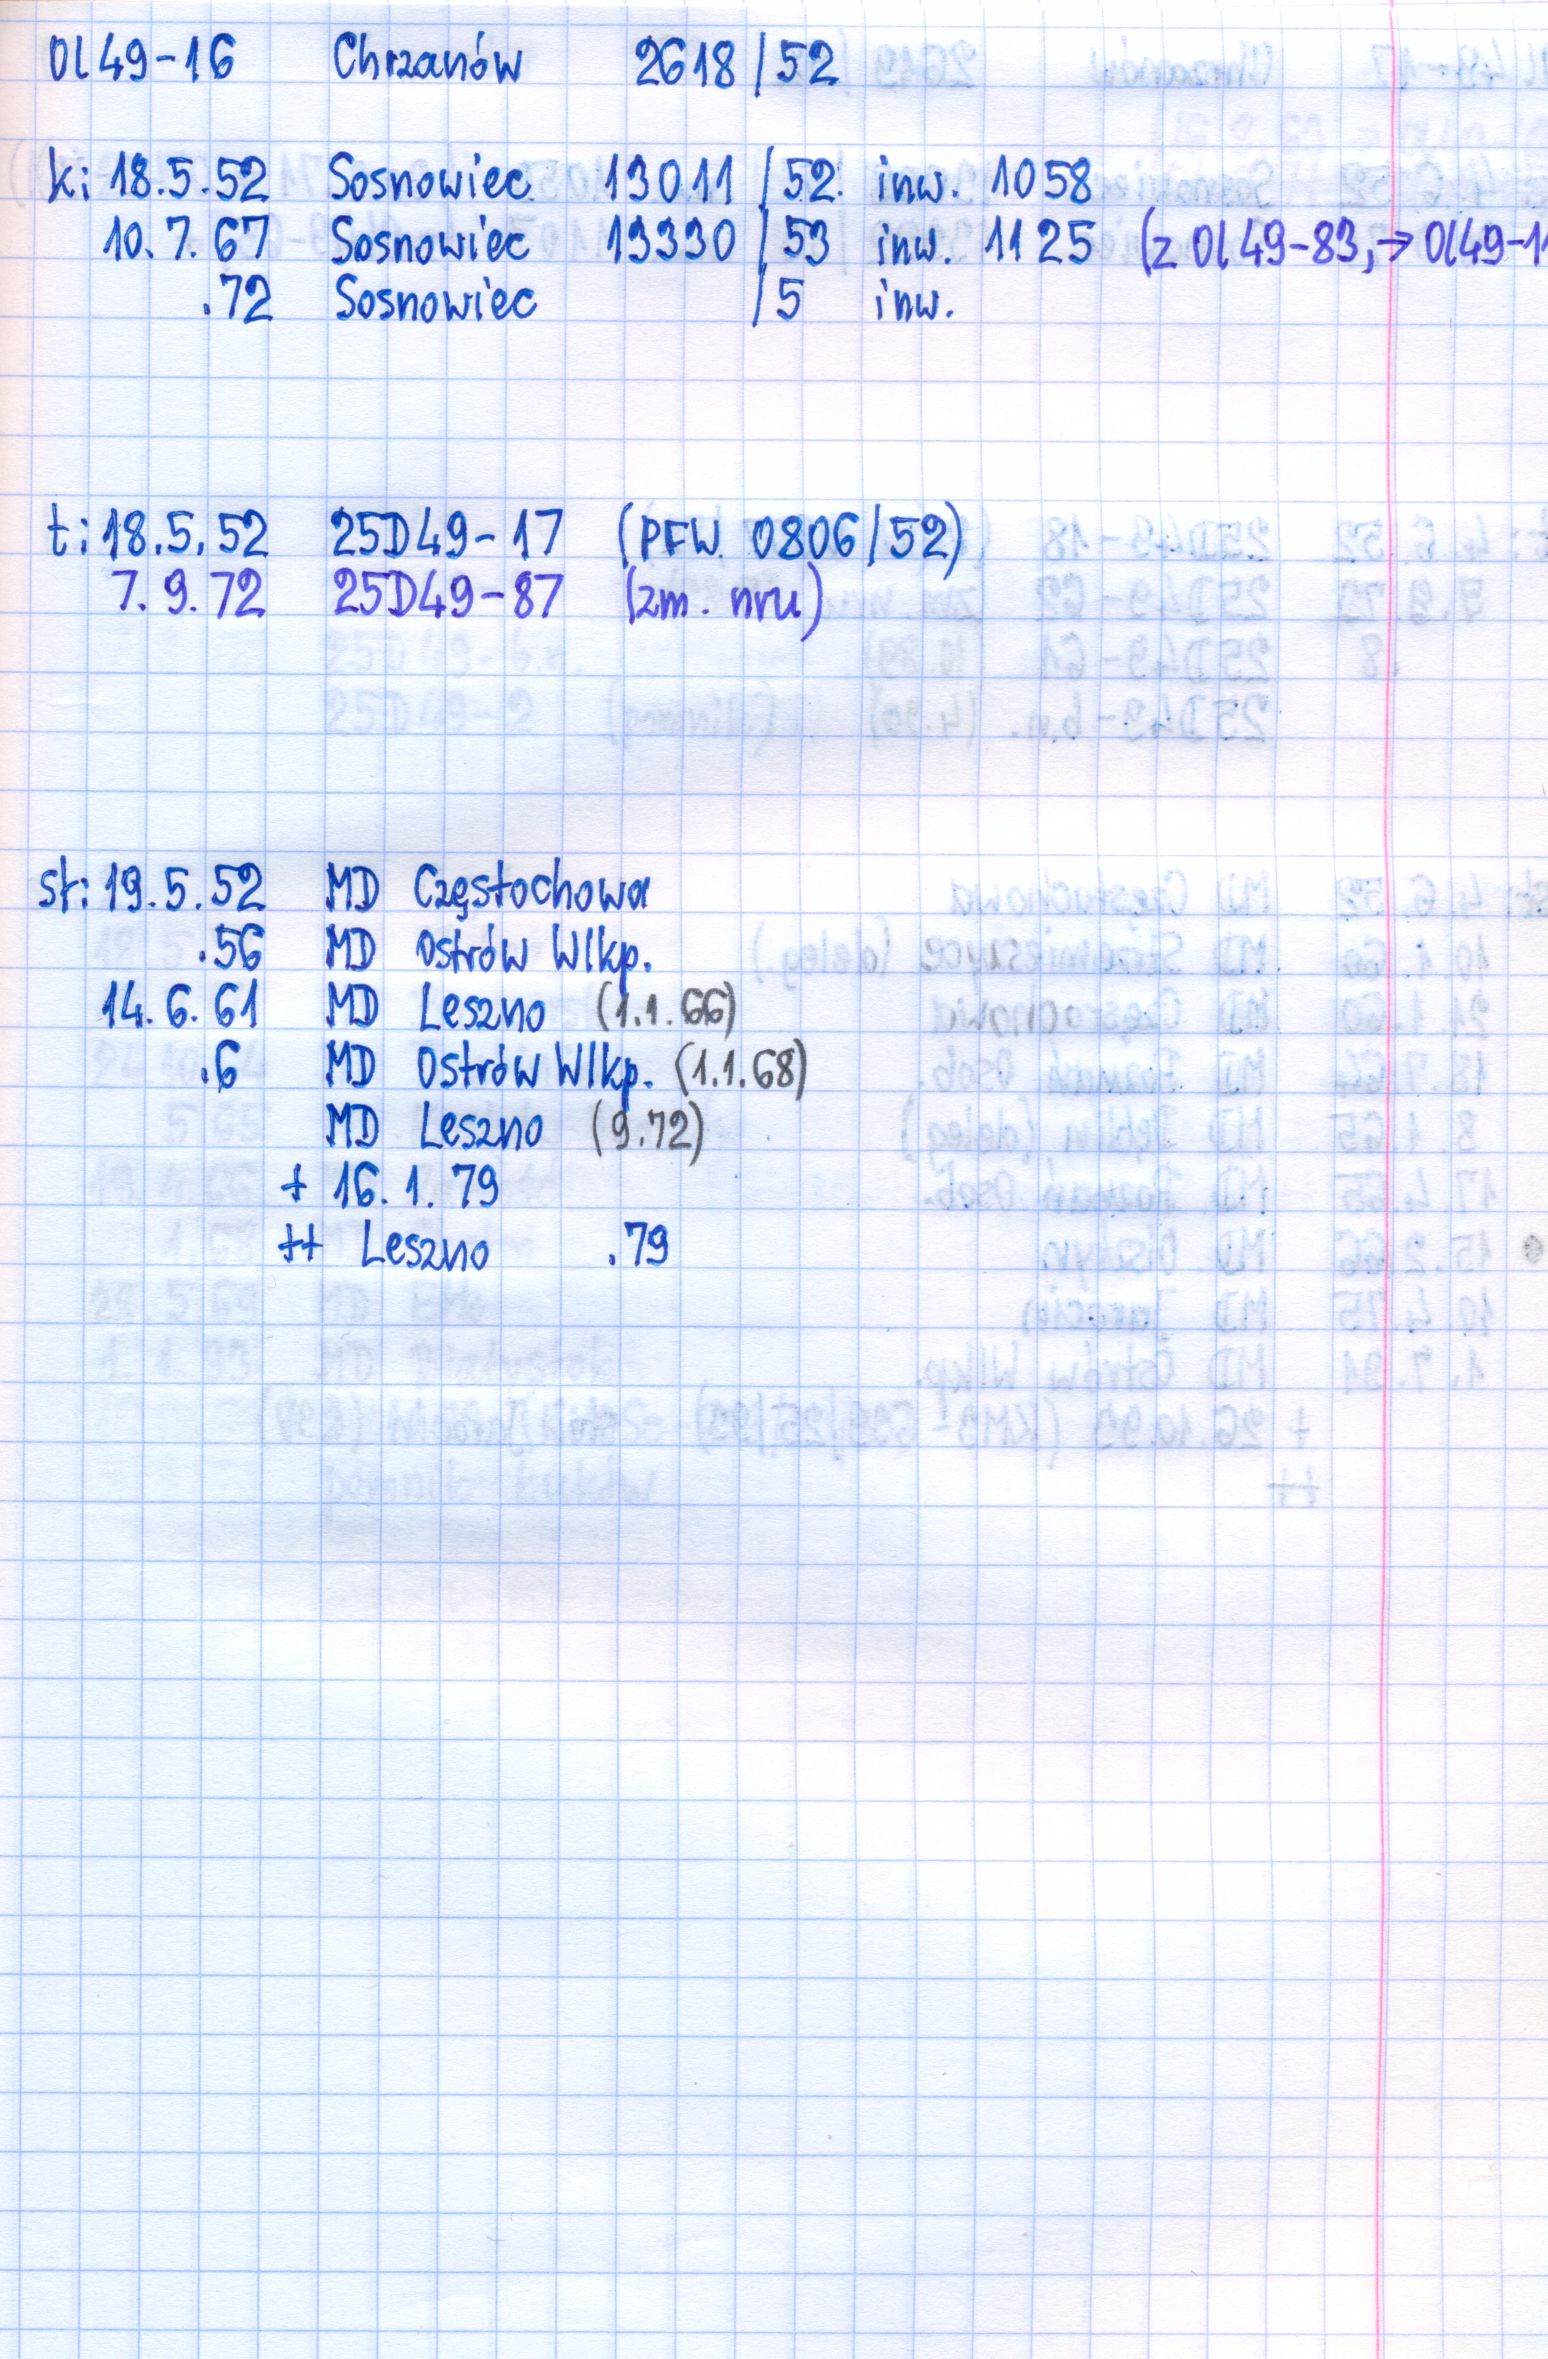 Ol49-16 Chrzanów 2618/52
k: 18.5.52 Sosnowiec 13011/52 inw. 1058
10.7.67 Sosnowiec 13330/53 inw. 1125 (z Ol49-83, → Ol49-11
.72 Sosnowiec /5 inw.
t: 18.5.52 25D49-17 (PFW 0806/52)
7.9.72 25D49-87 (zm. nru)
st: 19.5.52 MD Częstochowa
.56 MD Ostrów Wlkp.
14.6.61 MD Leszno (1.1.66)
.6 MD Ostrów Wlkp. (1.1.68)
MD Leszno (9.72)
+ 16.1.79
++ Leszno .79